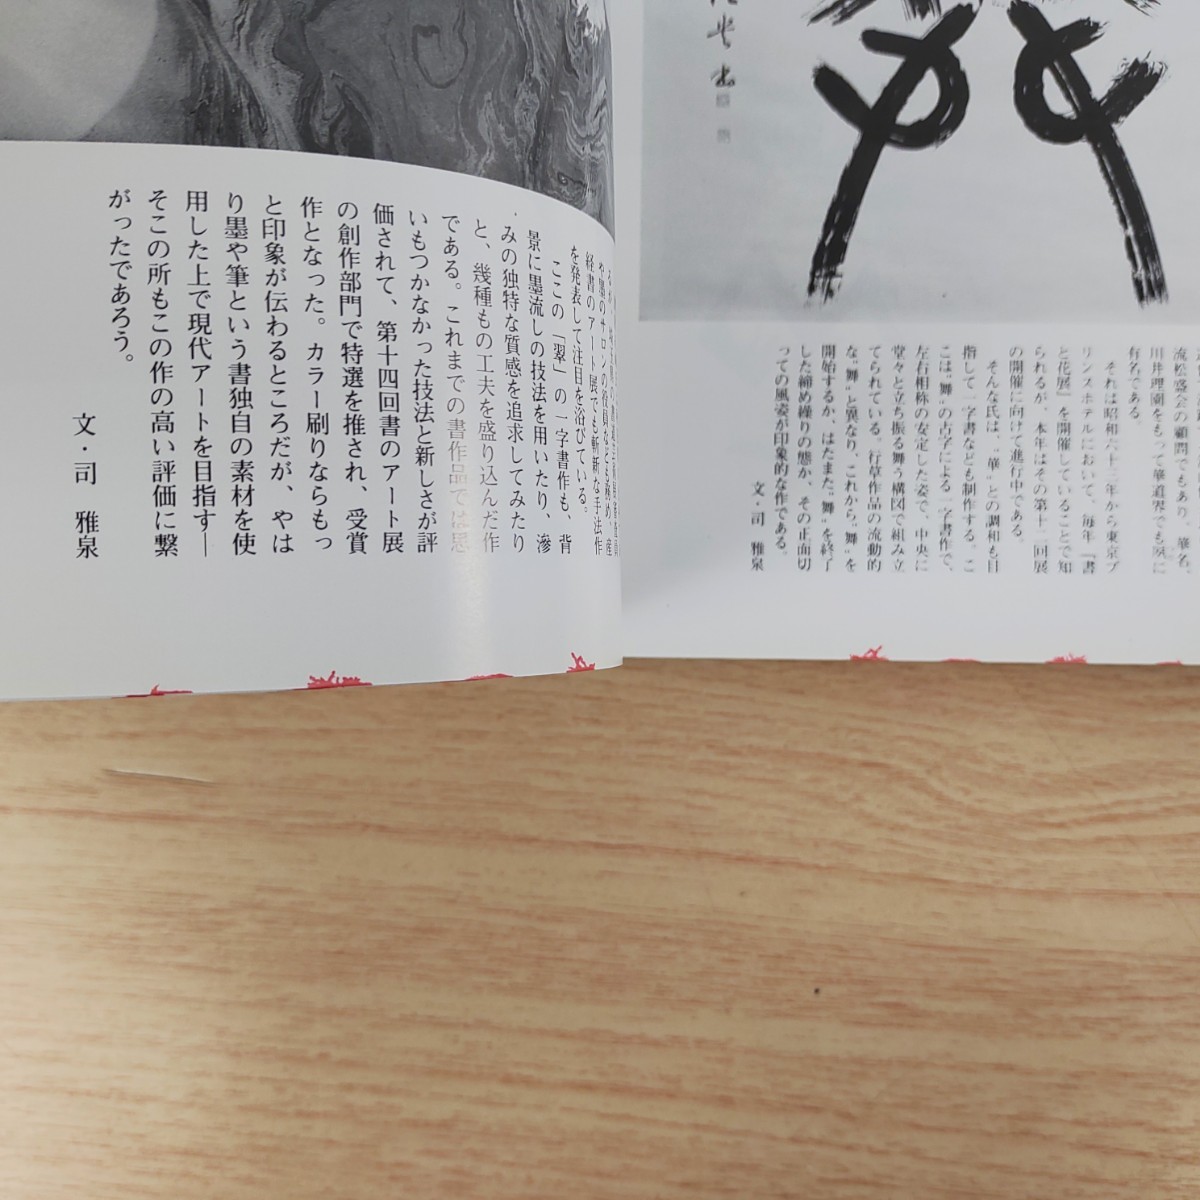 流松盛会の顧問でもあり、華名、
川井理園をもって華道界でも夙に
有名である。
それは昭和六十三年から東京プ
リンスホテルにおいて、毎年『書
と花展』を開催していることで知
られるが、本年はその第十二回展
の開催に向けて進行中である。
そんな氏は、〝華〟との調和も目
指して一字書なども制作する。こ
こは〝舞〟の古字による一字書作で、
左右相称の安定した姿で、中央に
堂々と立ち振る舞う構図で組み立
てられている。行草作品の流動的
な〝舞〟と異なり、これから〝舞〟を
開始するか、はたまた〝舞〟を終了
した締め繰りの態か、その正面切
っての風姿が印象的な作である。
文・司 雅泉
経書のアート展でも斬新な手法作
を発表して注目を浴びている。
ここの「翠」の一字書作も、背
景に墨流しの技法を用いたり、滲
みの独特な質感を追求してみたり
と、幾種もの工夫を盛り込んだ作
である。これまでの書作品では思
いもつかなかった技法と新しさが評
価されて、第十四回書のアート展
の創作部門で特選を推され、受賞
作となった。カラー刷りならもっ
と印象が伝わるところだが、やは
り墨や筆という書独自の素材を使
用した上で現代アートを目指す―
そこの所もこの作の高い評価に繋
がったであろう。
文・司 雅泉